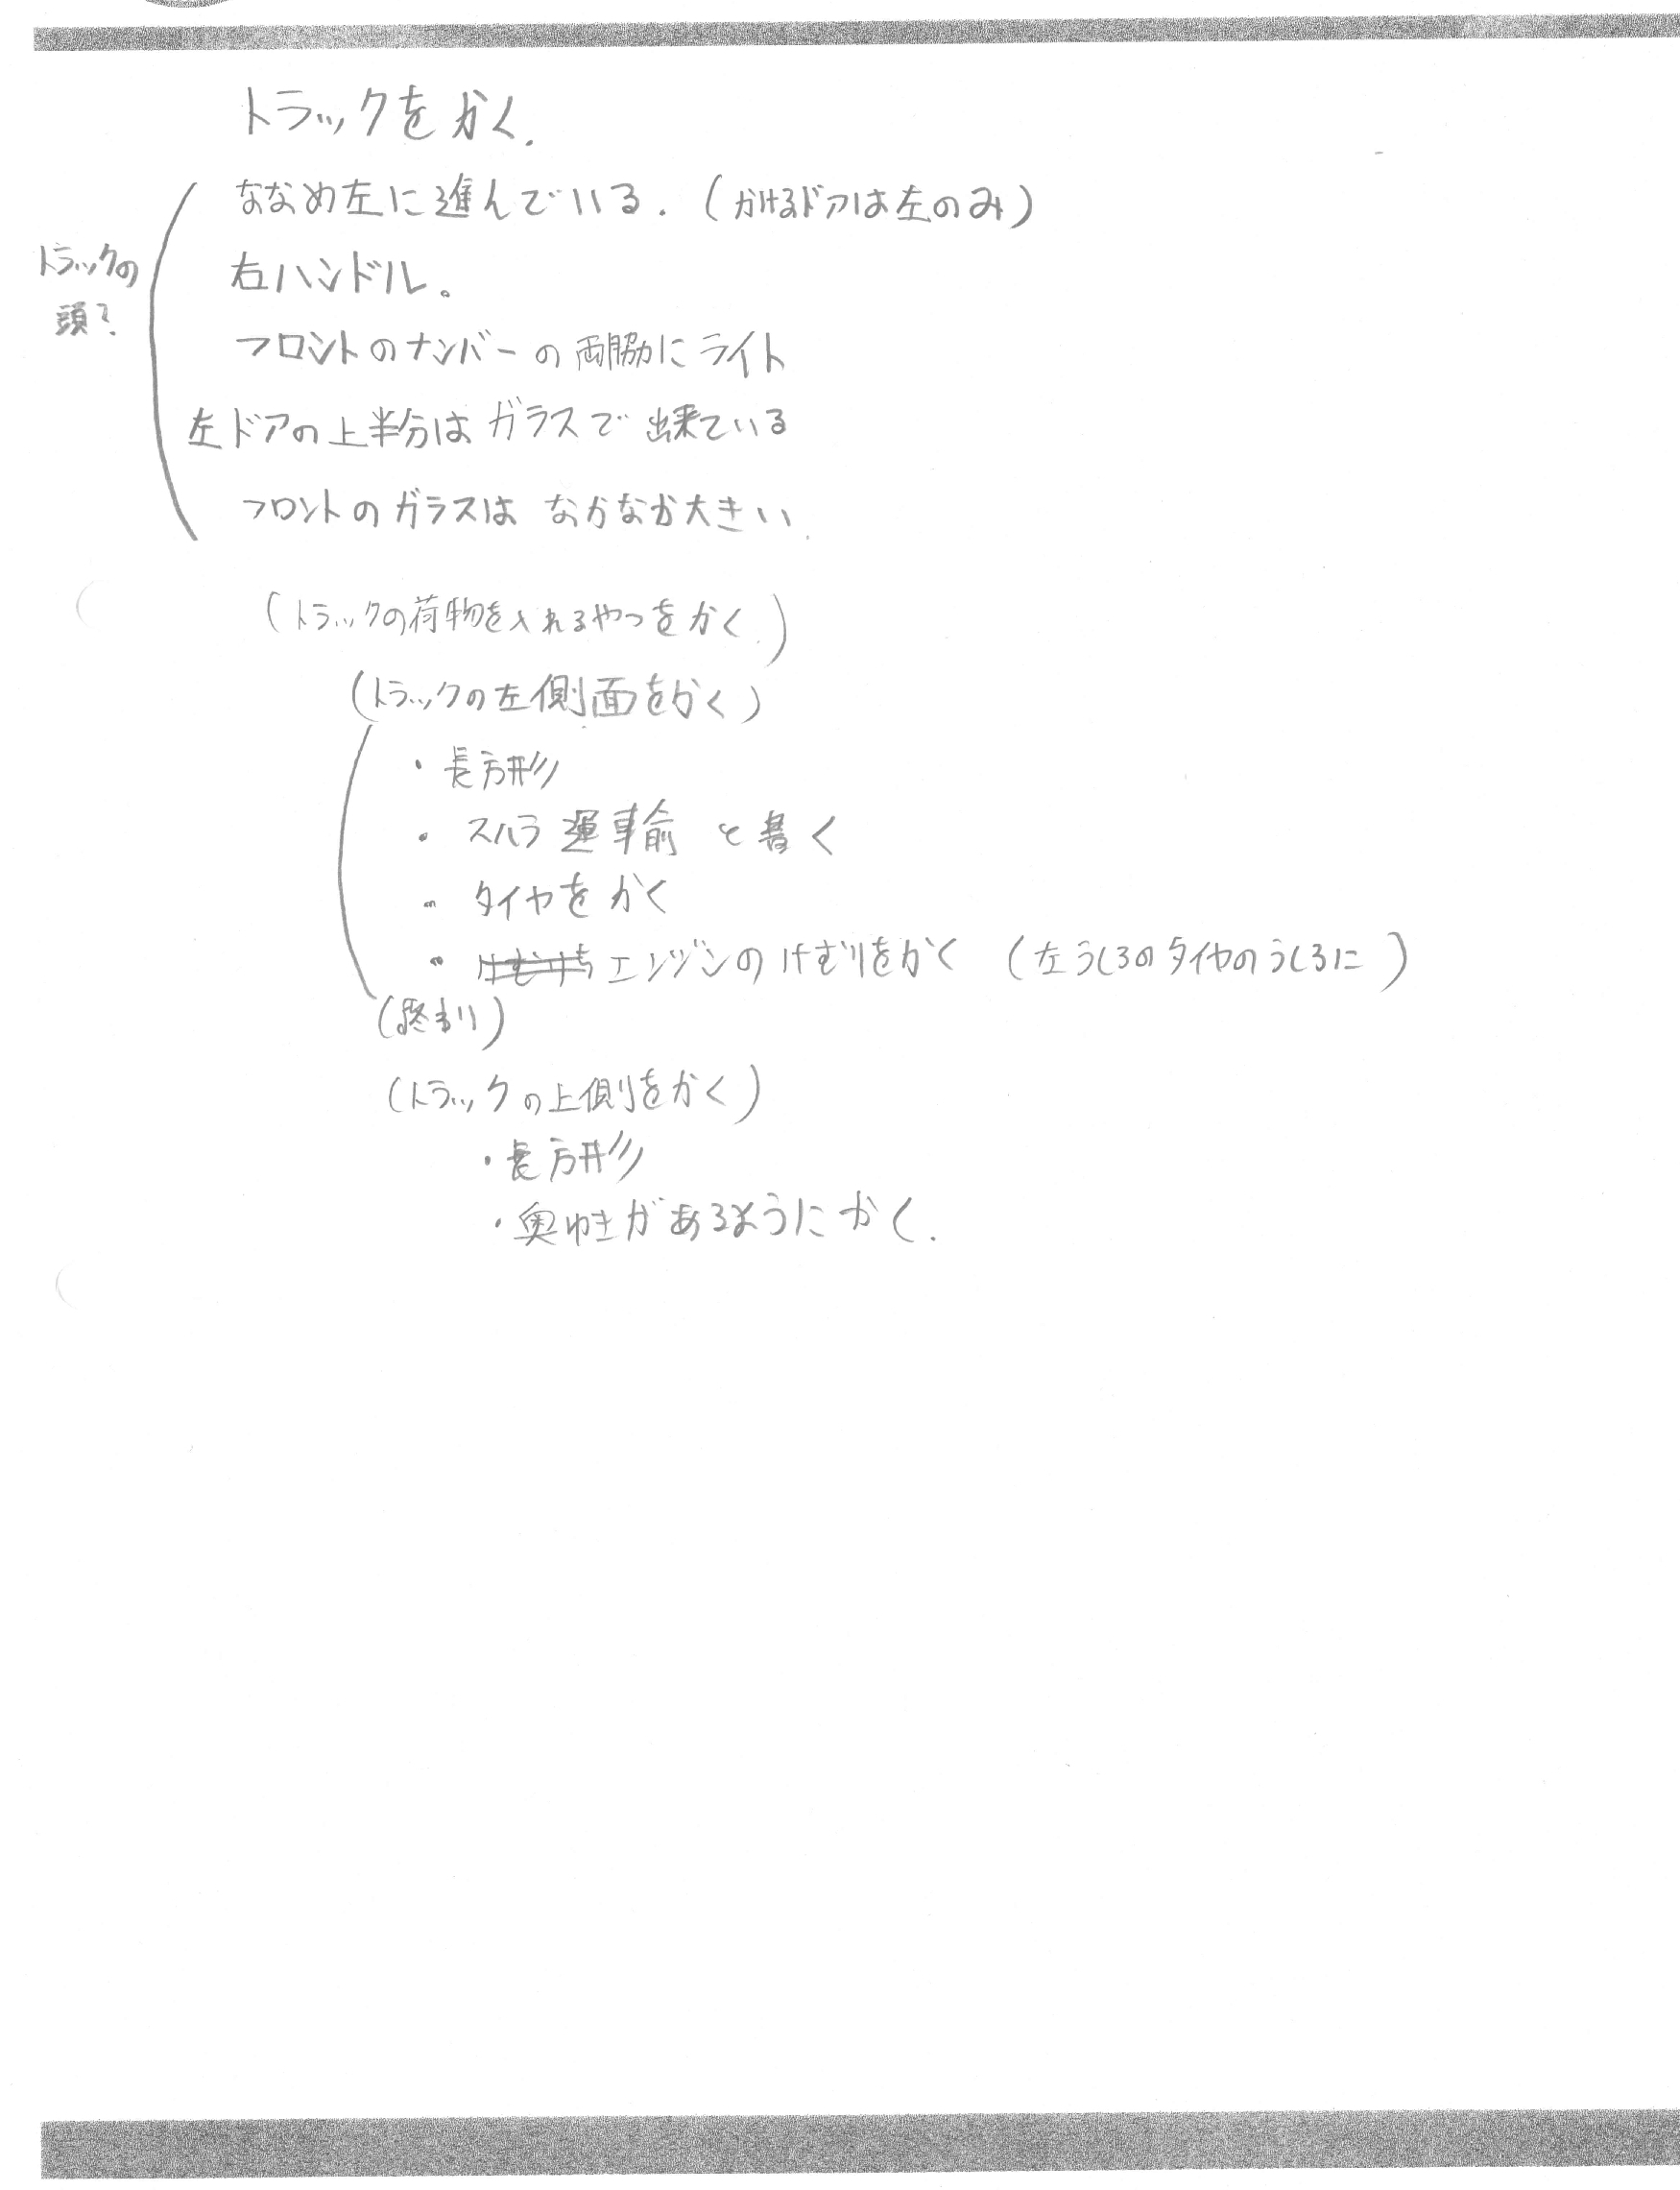 トラックをかく.
ななめ左に進んでいる.(かけるドアは左のみ)
トラックの
頭?
右ハンドル。
フロントのナンバーの両脇にライト
左ドアの上半分はガラスで出来ている
フロントのガラスは なかなか大きい.
(トラックの荷物を入れるやつをかく.)
(トラックの左側面をかく)
・長方形
・スハラ運輸 と書く
・タイヤをかく
・エンジンのけむりをかく (左うしろのタイヤのうしろに)
(終まり)
(トラックの上側をかく)
・長方形
・奥ゆきがあるようにかく.